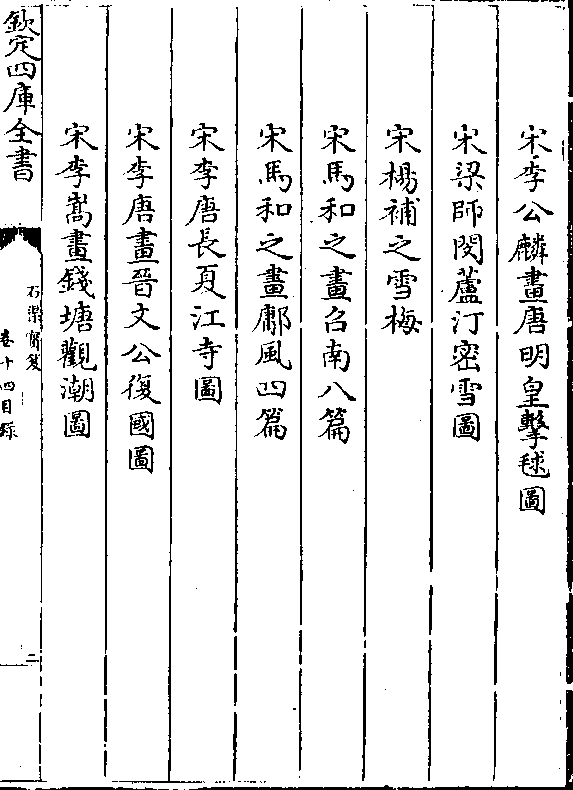 宋李公麟畫唐明皇擊毬圖
宋梁師閔蘆汀密雪圖
宋楊補之雪梅
宋馬和之畫召南八篇
宋馬和之畫鄘風四篇
宋李唐長夏江寺圖
宋李唐畫晉文公復國圖
宋李嵩畫錢塘觀潮圖
欽定四庫全書
石渠寳笈
卷十四目録
二